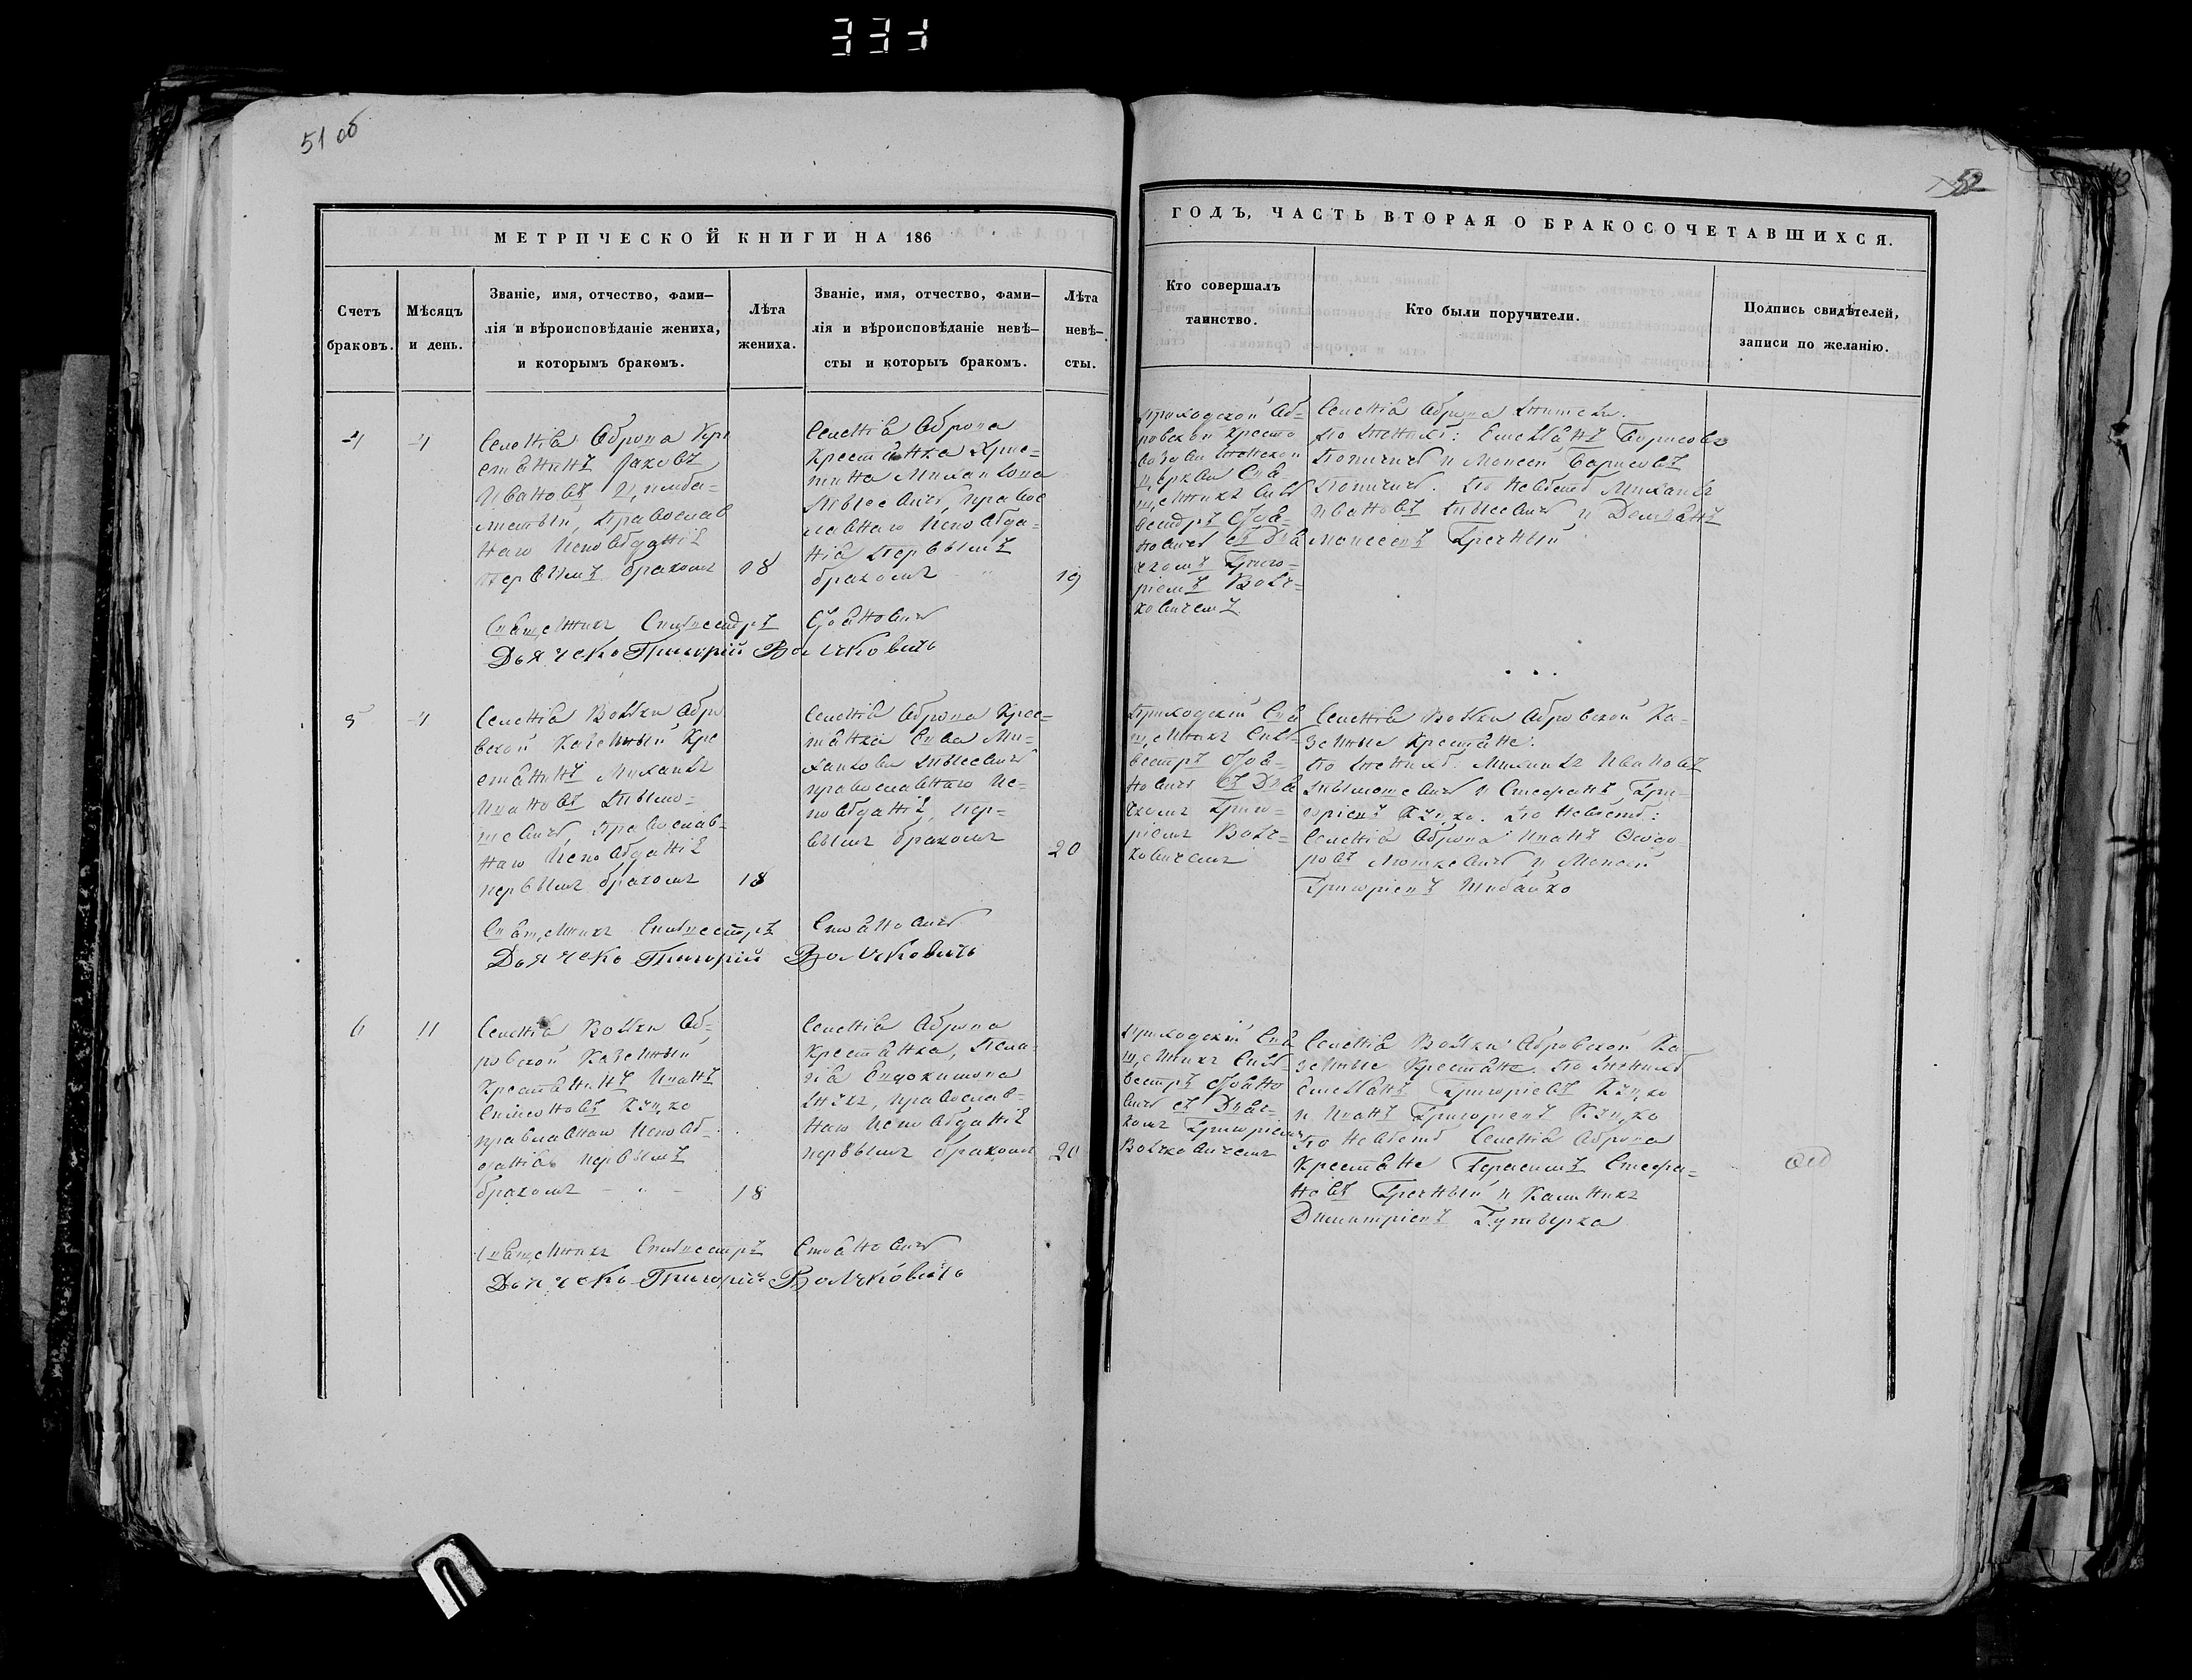 331
51 об
52
МЕТРИЧЕСКОЙ КНИГИ НА 186
ГОДЪ, ЧАСТЬ ВТОРАЯ О БРАКОСОЧЕТАВШИХСЯ.
Счетъ браковъ.
Мѣсяцъ и день.
Званіе, имя, отчество, фами-
лія и вѣроисповѣданіе жениха,
и которымъ бракомъ.
Лѣта жениха.
Званіе, имя, отчество, фами-
лія и вѣроисповѣданіе невѣ-
сты и которыъ бракомъ.
Лѣта невѣ-
сты.
Кто совершалъ
таинство.
Кто были поручители.
Подпись свидѣтелей,
записи по желанію.
4
4
Селенія Оброва Кре
стянинъ Яковъ
Ивановъ
Православ
наго Исповѣданія
первымъ бракомъ
18
Селенія Оброва
Крестьянка Хрис-
тина Михаилова
правос
лавнаго Исповѣда-
нія первымъ
бракомъ
19
Приходской Об-
ровской Кресто
воздвиженской
церкви Свя
щенникъ Силь
вестръ
съ Дья
чкомъ Григо-
ріемъ Волч-
ковичемъ
Селенія Оброва жители.
По женихѣ: Емельянъ Борисовъ
и Моисей Борисовъ
По невѣстѣ Михаилъ
Ивановъ и Демьянъ
Моисеевъ Гречный
Священникъ Сильвестръ
Дьячекъ Григорій Волчковичъ
5
4
Селенія Вольки Обро
вской Казенный Кре
стянинъ Михаилъ
Ивановъ
Православ-
наго Исповѣданія
первымъ бракомъ
18
Селенія Оброва Крес-
тянка Ева Ми-
хаилова
православнаго Ис-
повѣданія, пер-
вымъ бракомъ
20
Приходскій Свя
щенникъ Силь-
вестръ
съ Дья
чкомъ Григо-
ріемъ Волч-
ковичемъ
Селенія Вольки Обровской Ка-
зенные Крестяне:
По женихѣ. Михаилъ Ивановъ
и Стефанъ Гри-
горіевъ Куцко. По невѣстѣ:
Селенія Оброва Иванъ Ѳеодо-
ровъ Люткевичъ и Моисей
Григоріевъ Шибайко
Священникъ Сильвестръ
Дьячекъ Григорій Волчковичъ
6
11
Селенія Вольки Об-
ровской Казенный
Крестянинъ Иванъ
Симеоновъ Куцко
православнаго Исповѣ-
данія первымъ
бракомъ
18
Селенія Оброва
Крестянка, Пела-
гія Евдокимова
православ-
наго Исповѣданія
первымъ бракомъ
20
Приходскій Свя
щенникъ Силь
вестръ
съ Дьяч-
комъ Григоріемъ
Волчковичемъ
Селенія Вольки Обровской Ка
зенные Крестяне. По женихѣ
Емельянъ Григоріевъ Куцко
и Иванъ Григоріевъ Куцко
По невѣстѣ Селенія Оброва
Крестяне Герасимъ Стефа-
новъ Гречный и Калинникъ
Димитріевъ
Священникъ Сильвестръ
Дьячекъ Григорій Волчковичъ